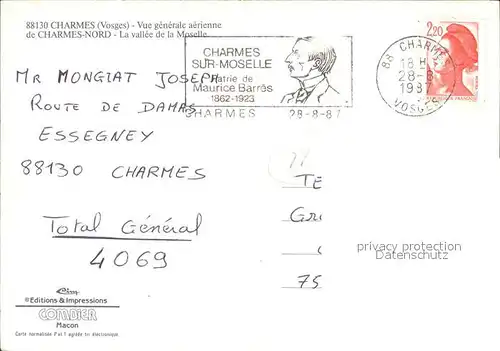 88130 CHARMES (Vosges) - Vue générale aérienne
de CHARMES-NORD - La vallée de la Moselle.
CHARMES
SUR-MOSELLE
Patrie de
Maurice Barrès
1862-1923
CHARMES 28-8-87
88 CHARMES
18 H
28-8
1987
VOSGES
2,20
MR MONGIAT JOSEPH
ROUTE DE DAMAS
ESSEGNEY
88130 CHARMES
Total Général
4069
TE
GRI
75
privacy protection
Datenschutz
Cim
®Editions & Impressions
COMBIER
Macon
Carte normalisée P et T agréée tri électronique.